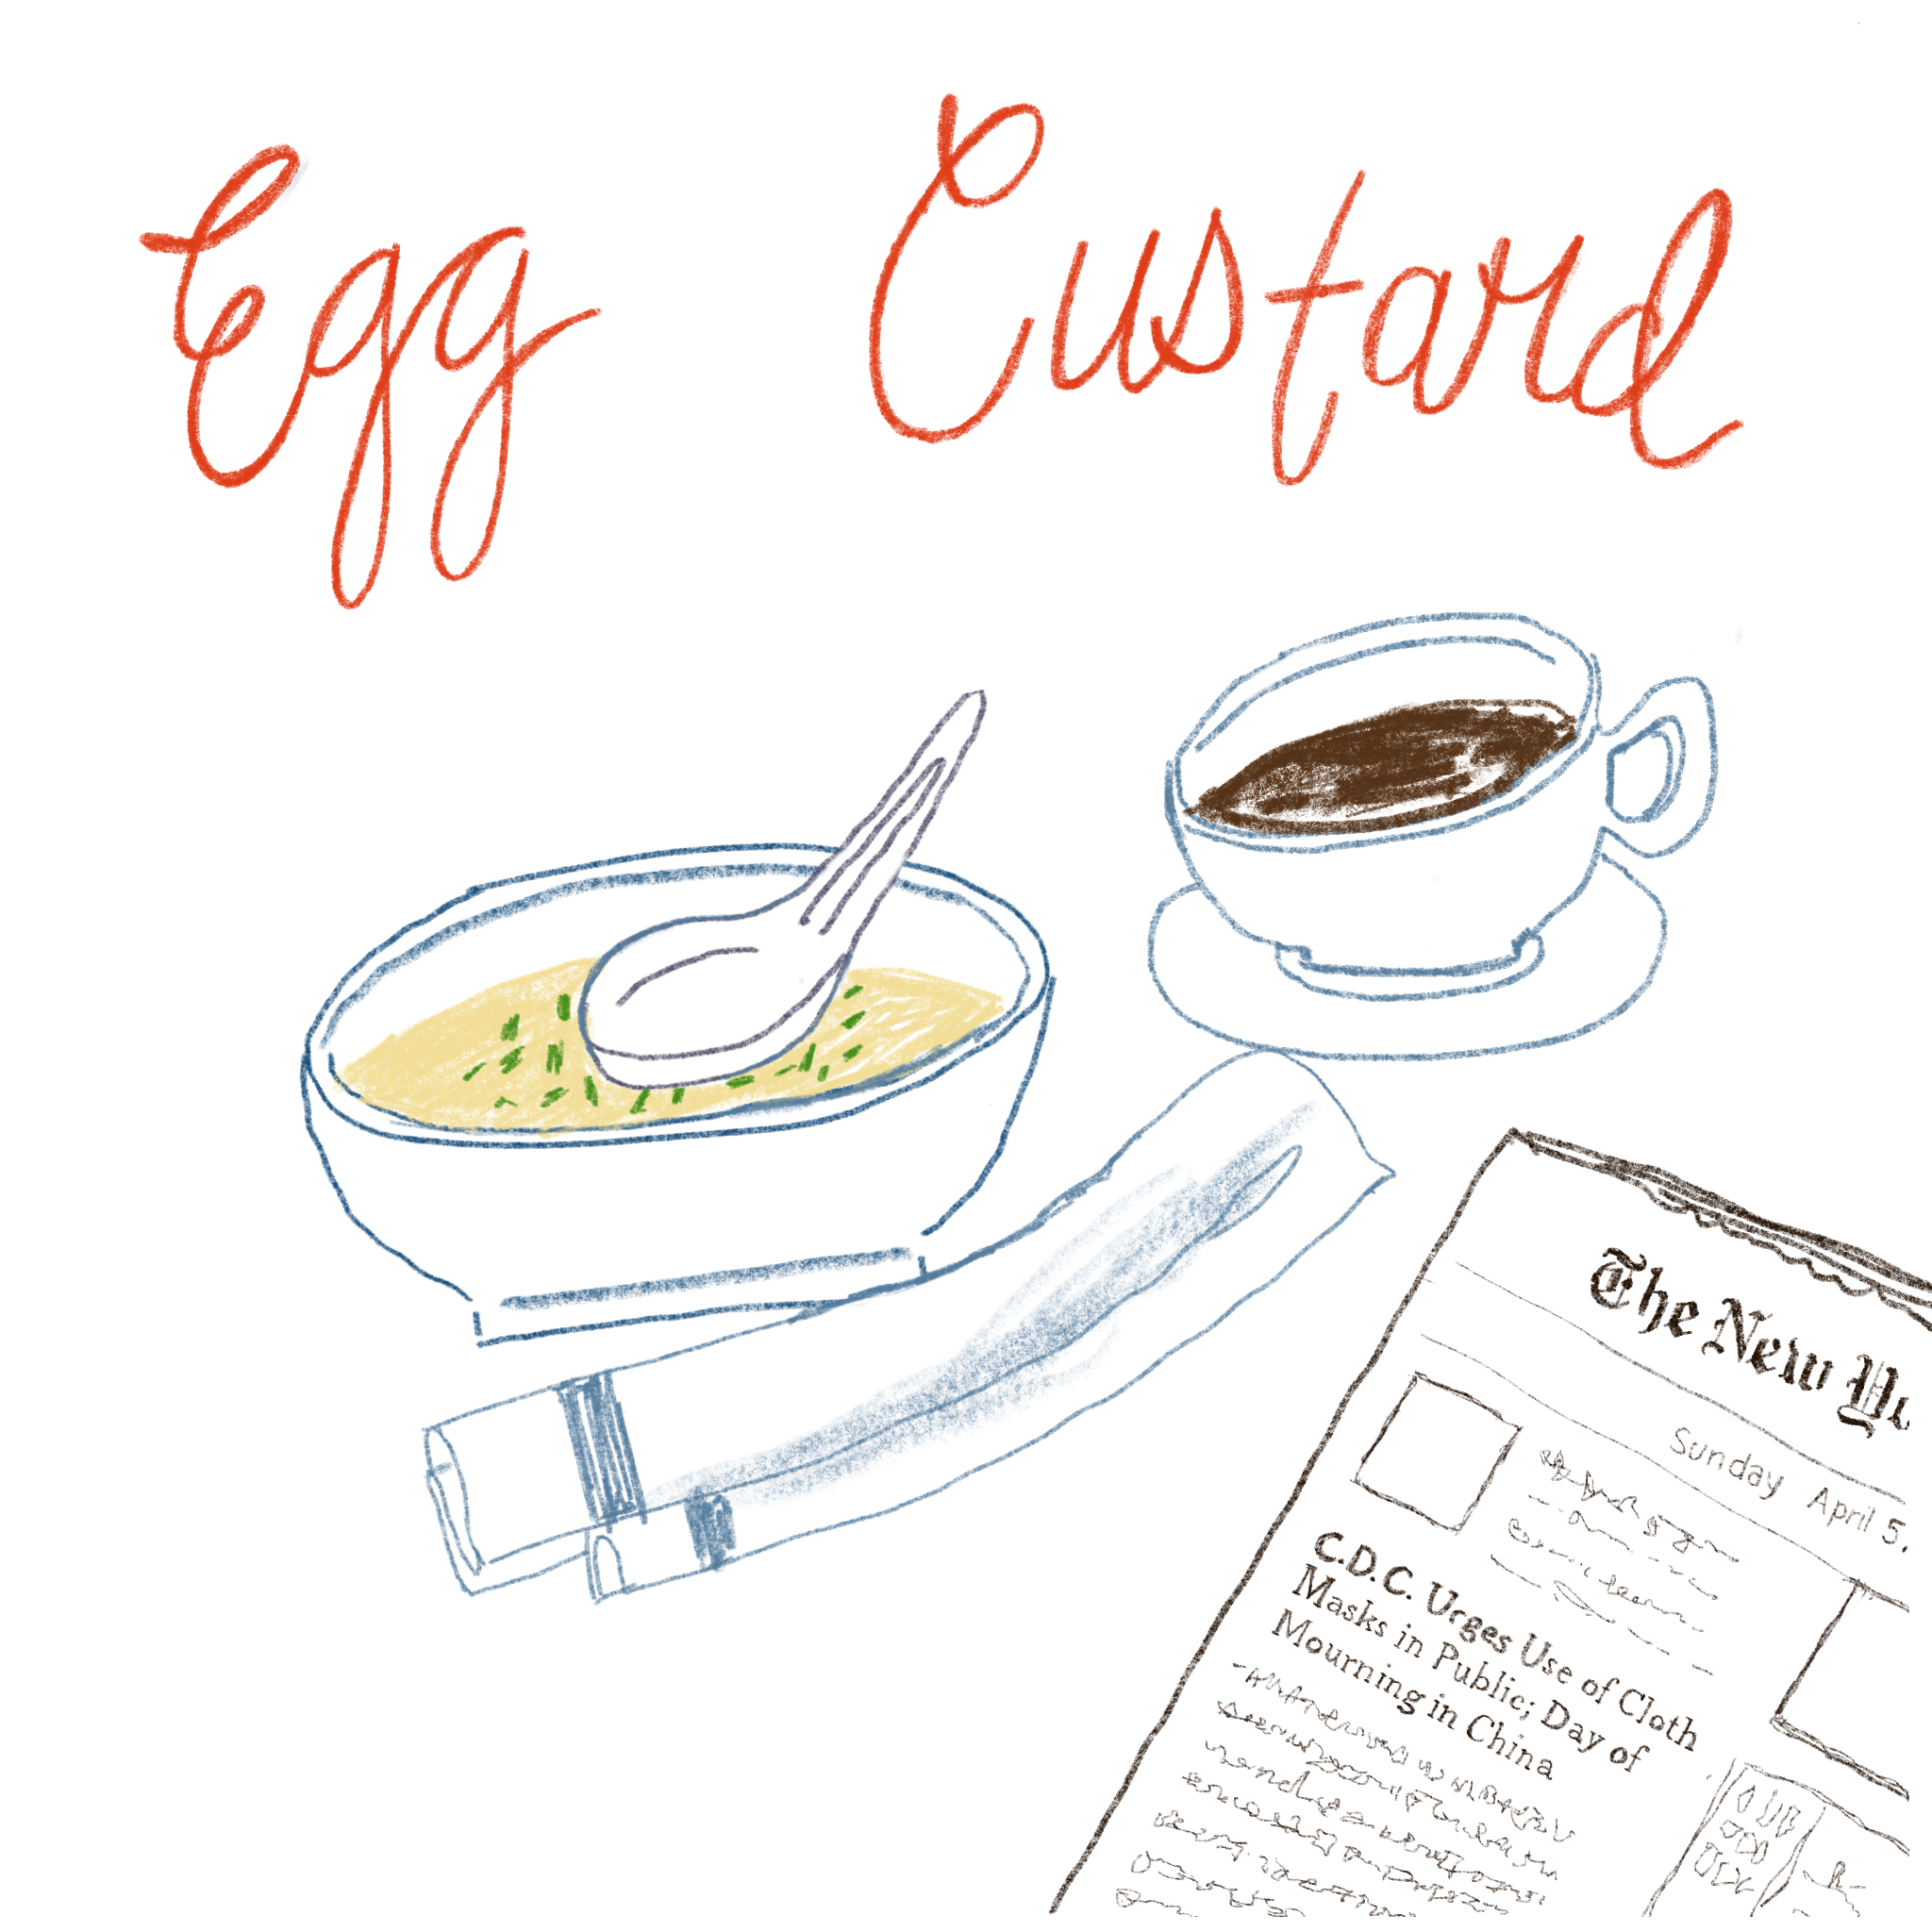 Egg Custard
The New Yo
Sunday April 5,
C.D.C. Urges Use of Cloth
Masks in Public; Day of
Mourning in China